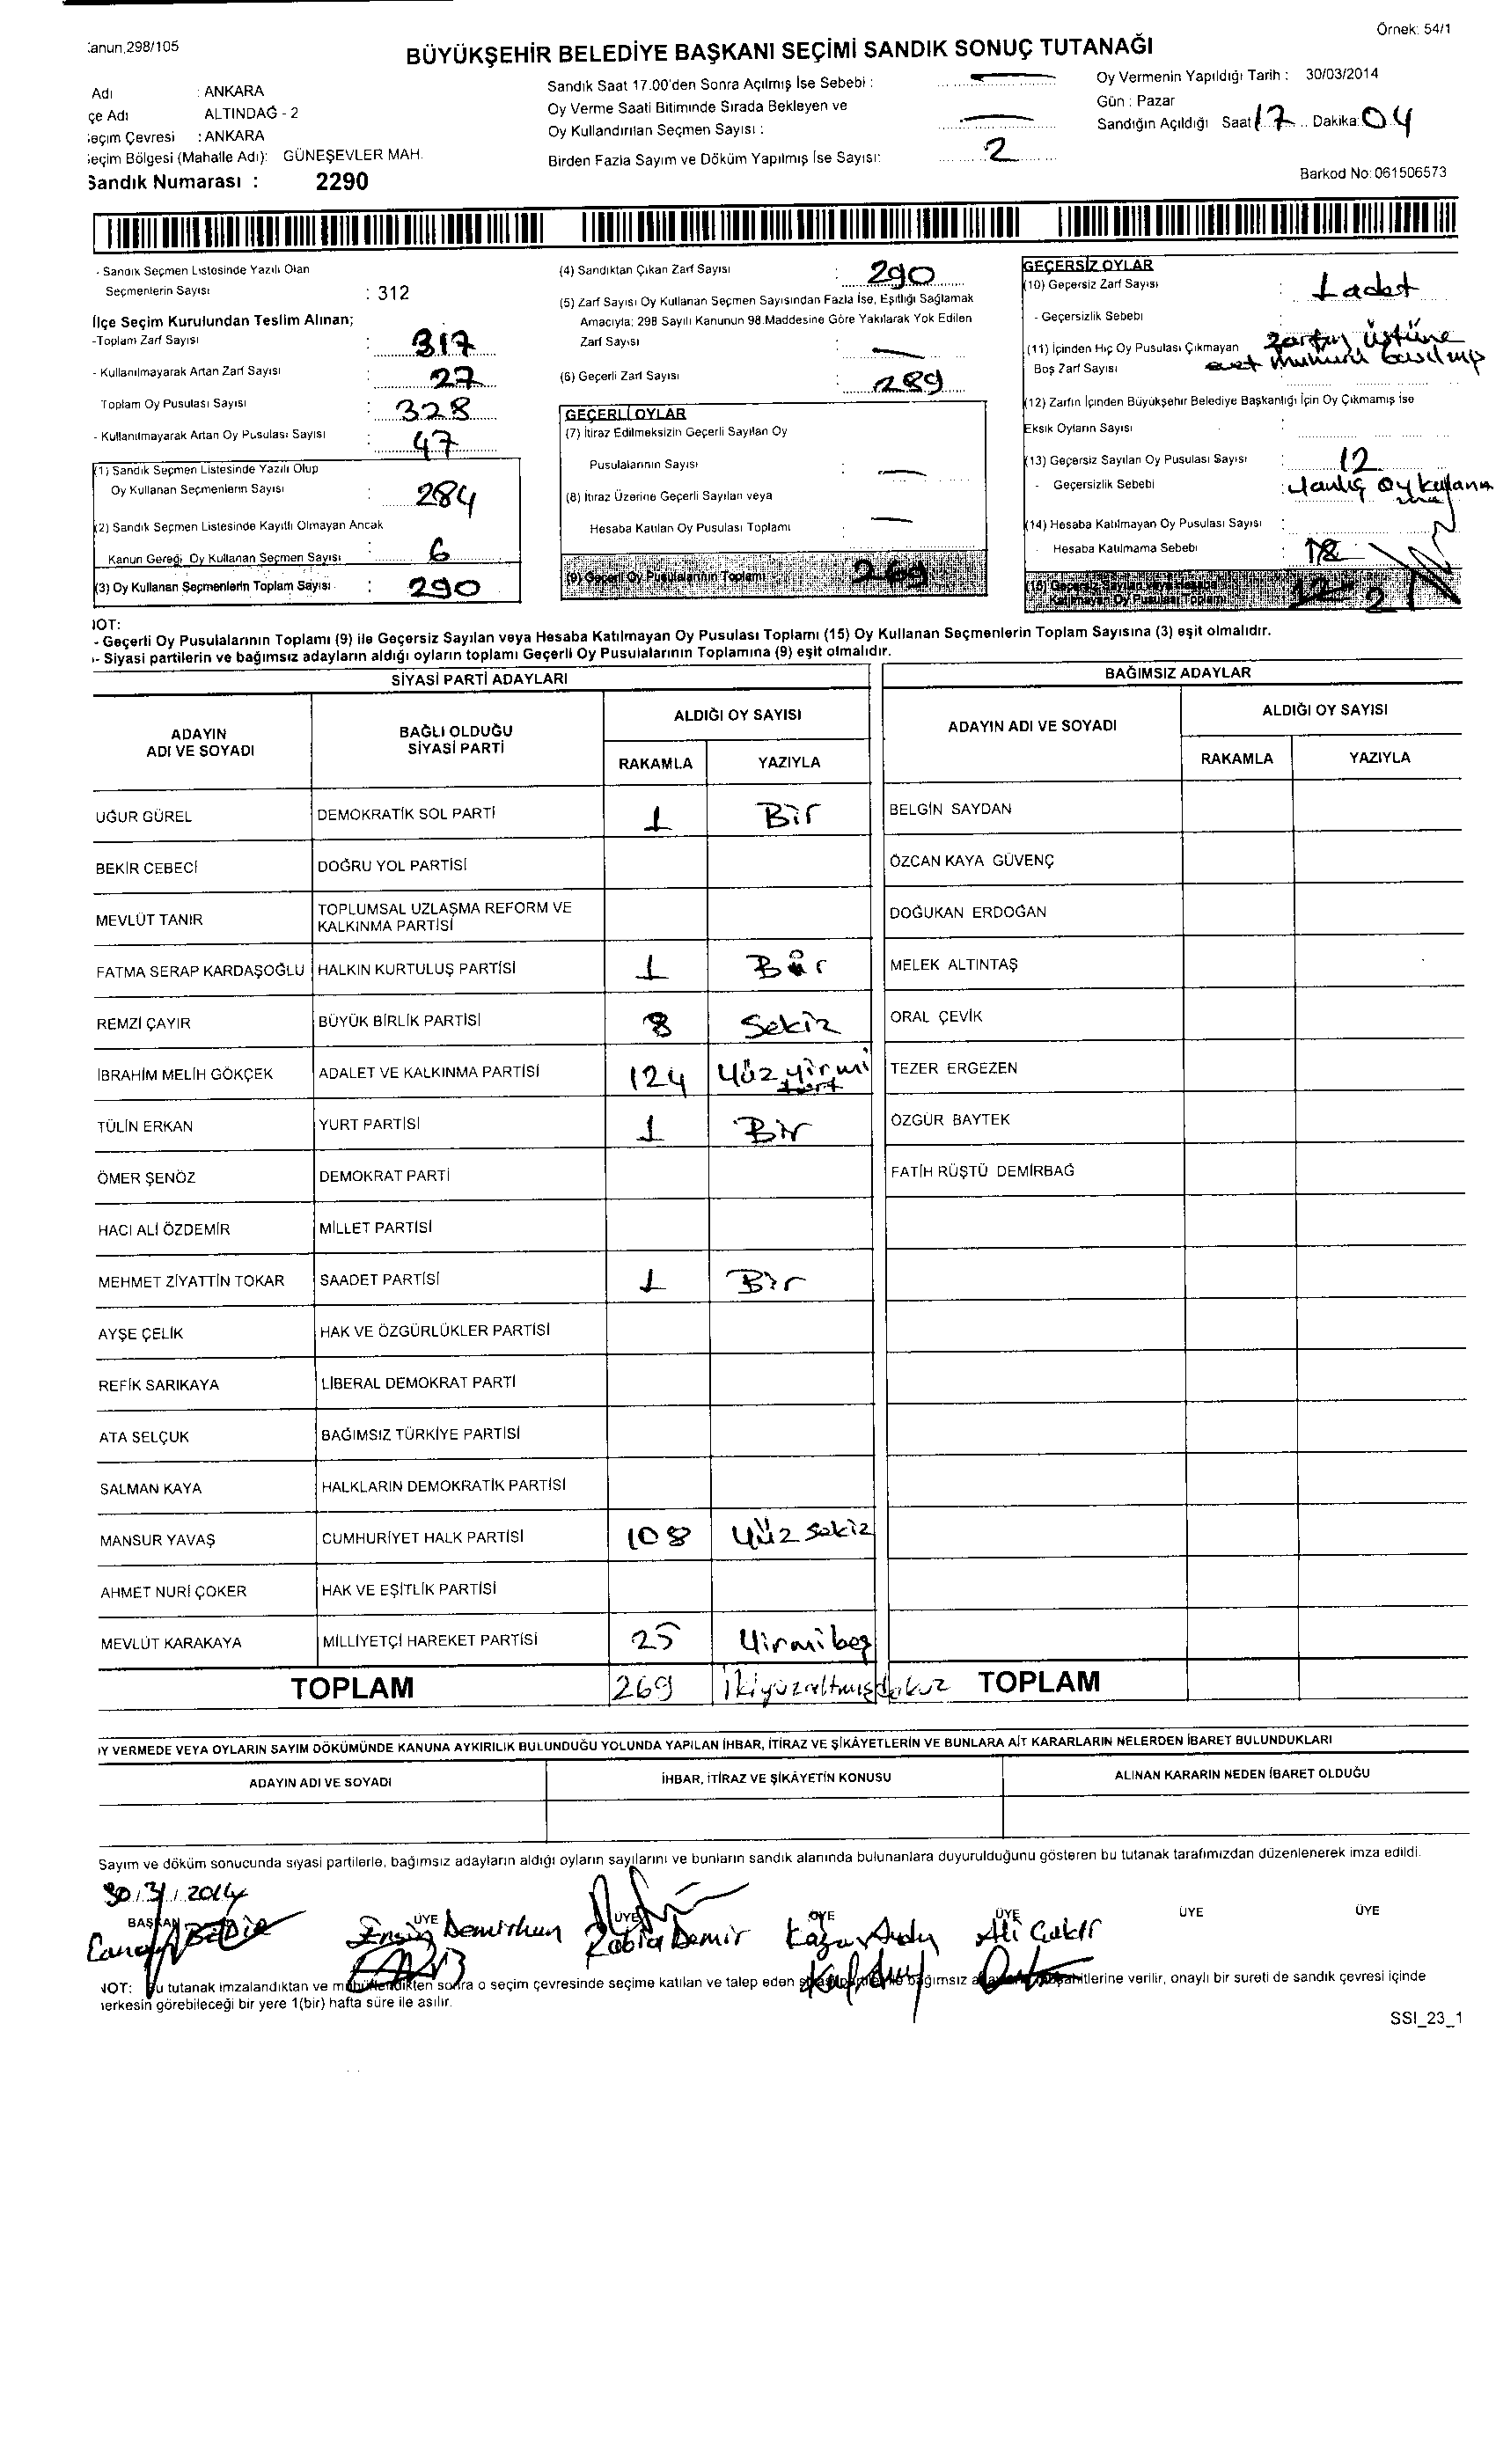 Örnek: 54/1
anun,298/105
BÜYÜKŞEHİR BELEDİYE BAŞKANI SEÇİMİ SANDIK SONUÇ TUTANAĞI
Adı : ANKARA
çe Adı ALTINDAĞ - 2
eçim Çevresi : ANKARA
eçim Bölgesi (Mahalle Adı): GÜNEŞEVLER MAH.
Sandık Numarası : 2290
Sandık Saat 17.00'den Sonra Açılmış İse Sebebi :
Oy Verme Saati Bitiminde Sırada Bekleyen ve
Oy Kullandırılan Seçmen Sayısı :
Birden Fazla Sayım ve Döküm Yapılmış İse Sayısı: 2
Oy Vermenin Yapıldığı Tarih : 30/03/2014
Gün : Pazar
Sandığın Açıldığı Saat 17 Dakika: 04
Barkod No: 061506573
- Sandık Seçmen Listosinde Yazılı Olan
Seçmenlerin Sayısı : 312
İlçe Seçim Kurulundan Teslim Alınan;
-Toplam Zarf Sayısı : 317
- Kullanılmayarak Artan Zarf Sayısı : 27
Toplam Oy Pusulası Sayısı : 328
- Kullanılmayarak Artan Oy Pusulası Sayısı : 47
(1) Sandık Seçmen Listesinde Yazılı Olup
Oy Kullanan Seçmenlerin Sayısı : 284
(2) Sandık Seçmen Listesinde Kayıtlı Olmayan Ancak
Kanun Gereği Oy Kullanan Seçmen Sayısı : 6
(3) Oy Kullanan Seçmenlerin Toplam Sayısı : 290
(4) Sandıktan Çıkan Zarf Sayısı : 290
(5) Zarf Sayısı Oy Kullanan Seçmen Sayısından Fazla İse, Eşitliği Sağlamak
Amacıyla; 298 Sayılı Kanunun 98.Maddesine Göre Yakılarak Yok Edilen
Zarf Sayısı : —
(6) Geçerli Zarf Sayısı : 289
GEÇERLİ OYLAR
(7) İtiraz Edilmeksizin Geçerli Sayılan Oy
Pusulalarının Sayısı : —
(8) İtiraz Üzerine Geçerli Sayılan veya
Hesaba Katılan Oy Pusulası Toplamı : —
(9) Geçerli Oy Pusulalarının Toplamı : 269
GEÇERSİZ OYLAR
(10) Geçersiz Zarf Sayısı : 1 adet
- Geçersizlik Sebebi : zarfın üstüne
(11) İçinden Hiç Oy Pusulası Çıkmayan evet mührü basılmış
Boş Zarf Sayısı
(12) Zarfın İçinden Büyükşehir Belediye Başkanlığı İçin Oy Çıkmamış İse
Eksik Oyların Sayısı :
(13) Geçersiz Sayılan Oy Pusulası Sayısı : 12
- Geçersizlik Sebebi : Yanlış oy kullanma
(14) Hesaba Katılmayan Oy Pusulası Sayısı :
- Hesaba Katılmama Sebebi :
(15) Geçersiz Sayılan veya Hesaba
Katılmayan Oy Pusulası Toplamı
NOT:
- Geçerli Oy Pusulalarının Toplamı (9) ile Geçersiz Sayılan veya Hesaba Katılmayan Oy Pusulası Toplamı (15) Oy Kullanan Seçmenlerin Toplam Sayısına (3) eşit olmalıdır.
- Siyasi partilerin ve bağımsız adayların aldığı oyların toplamı Geçerli Oy Pusulalarının Toplamına (9) eşit olmalıdır.
SİYASİ PARTİ ADAYLARI BAĞIMSIZ ADAYLAR
ADAYIN ADI VE SOYADI BAĞLI OLDUĞU SİYASİ PARTİ ALDIĞI OY SAYISI ADAYIN ADI VE SOYADI ALDIĞI OY SAYISI
RAKAMLA YAZIYLA RAKAMLA YAZIYLA
UĞUR GÜREL DEMOKRATİK SOL PARTİ 1 Bir BELGİN SAYDAN
BEKİR CEBECİ DOĞRU YOL PARTİSİ ÖZCAN KAYA GÜVENÇ
MEVLÜT TANIR TOPLUMSAL UZLAŞMA REFORM VE KALKINMA PARTİSİ DOĞUKAN ERDOĞAN
FATMA SERAP KARDAŞOĞLU HALKIN KURTULUŞ PARTİSİ 1 Bir MELEK ALTINTAŞ
REMZİ ÇAYIR BÜYÜK BİRLİK PARTİSİ 8 Sekiz ORAL ÇEVİK
İBRAHİM MELİH GÖKÇEK ADALET VE KALKINMA PARTİSİ 124 Yüz yirmi dört TEZER ERGEZEN
TÜLİN ERKAN YURT PARTİSİ 1 Bir ÖZGÜR BAYTEK
ÖMER ŞENÖZ DEMOKRAT PARTİ FATİH RÜŞTÜ DEMİRBAĞ
HACI ALİ ÖZDEMİR MİLLET PARTİSİ
MEHMET ZİYATTİN TOKAR SAADET PARTİSİ 1 Bir
AYŞE ÇELİK HAK VE ÖZGÜRLÜKLER PARTİSİ
REFİK SARIKAYA LİBERAL DEMOKRAT PARTİ
ATA SELÇUK BAĞIMSIZ TÜRKİYE PARTİSİ
SALMAN KAYA HALKLARIN DEMOKRATİK PARTİSİ
MANSUR YAVAŞ CUMHURİYET HALK PARTİSİ 108 Yüz sekiz
AHMET NURİ ÇOKER HAK VE EŞİTLİK PARTİSİ
MEVLÜT KARAKAYA MİLLİYETÇİ HAREKET PARTİSİ 25 Yirmibeş
TOPLAM 269 İkiyüzaltmışdokuz TOPLAM
Y VERMEDE VEYA OYLARIN SAYIM DÖKÜMÜNDE KANUNA AYKIRILIK BULUNDUĞU YOLUNDA YAPILAN İHBAR, İTİRAZ VE ŞİKÂYETLERİN VE BUNLARA AİT KARARLARIN NELERDEN İBARET BULUNDUKLARI
ADAYIN ADI VE SOYADI İHBAR, İTİRAZ VE ŞİKÂYETİN KONUSU ALINAN KARARIN NEDEN İBARET OLDUĞU
Sayım ve döküm sonucunda siyasi partilerle, bağımsız adayların aldığı oyların sayılarını ve bunların sandık alanında bulunanlara duyurulduğunu gösteren bu tutanak tarafımızdan düzenlenerek imza edildi.
30/3/2014
BAŞKAN ÜYE ÜYE ÜYE ÜYE ÜYE ÜYE
Ersin Demirhan Rabia Demir Ali Çakır
NOT: Bu tutanak imzalandıktan ve mühürlendikten sonra o seçim çevresinde seçime katılan ve talep eden bağımsız verilir, onaylı bir sureti de sandık çevresi içinde
herkesin görebileceği bir yere 1(bir) hafta süre ile asılır.
SSI_23_1